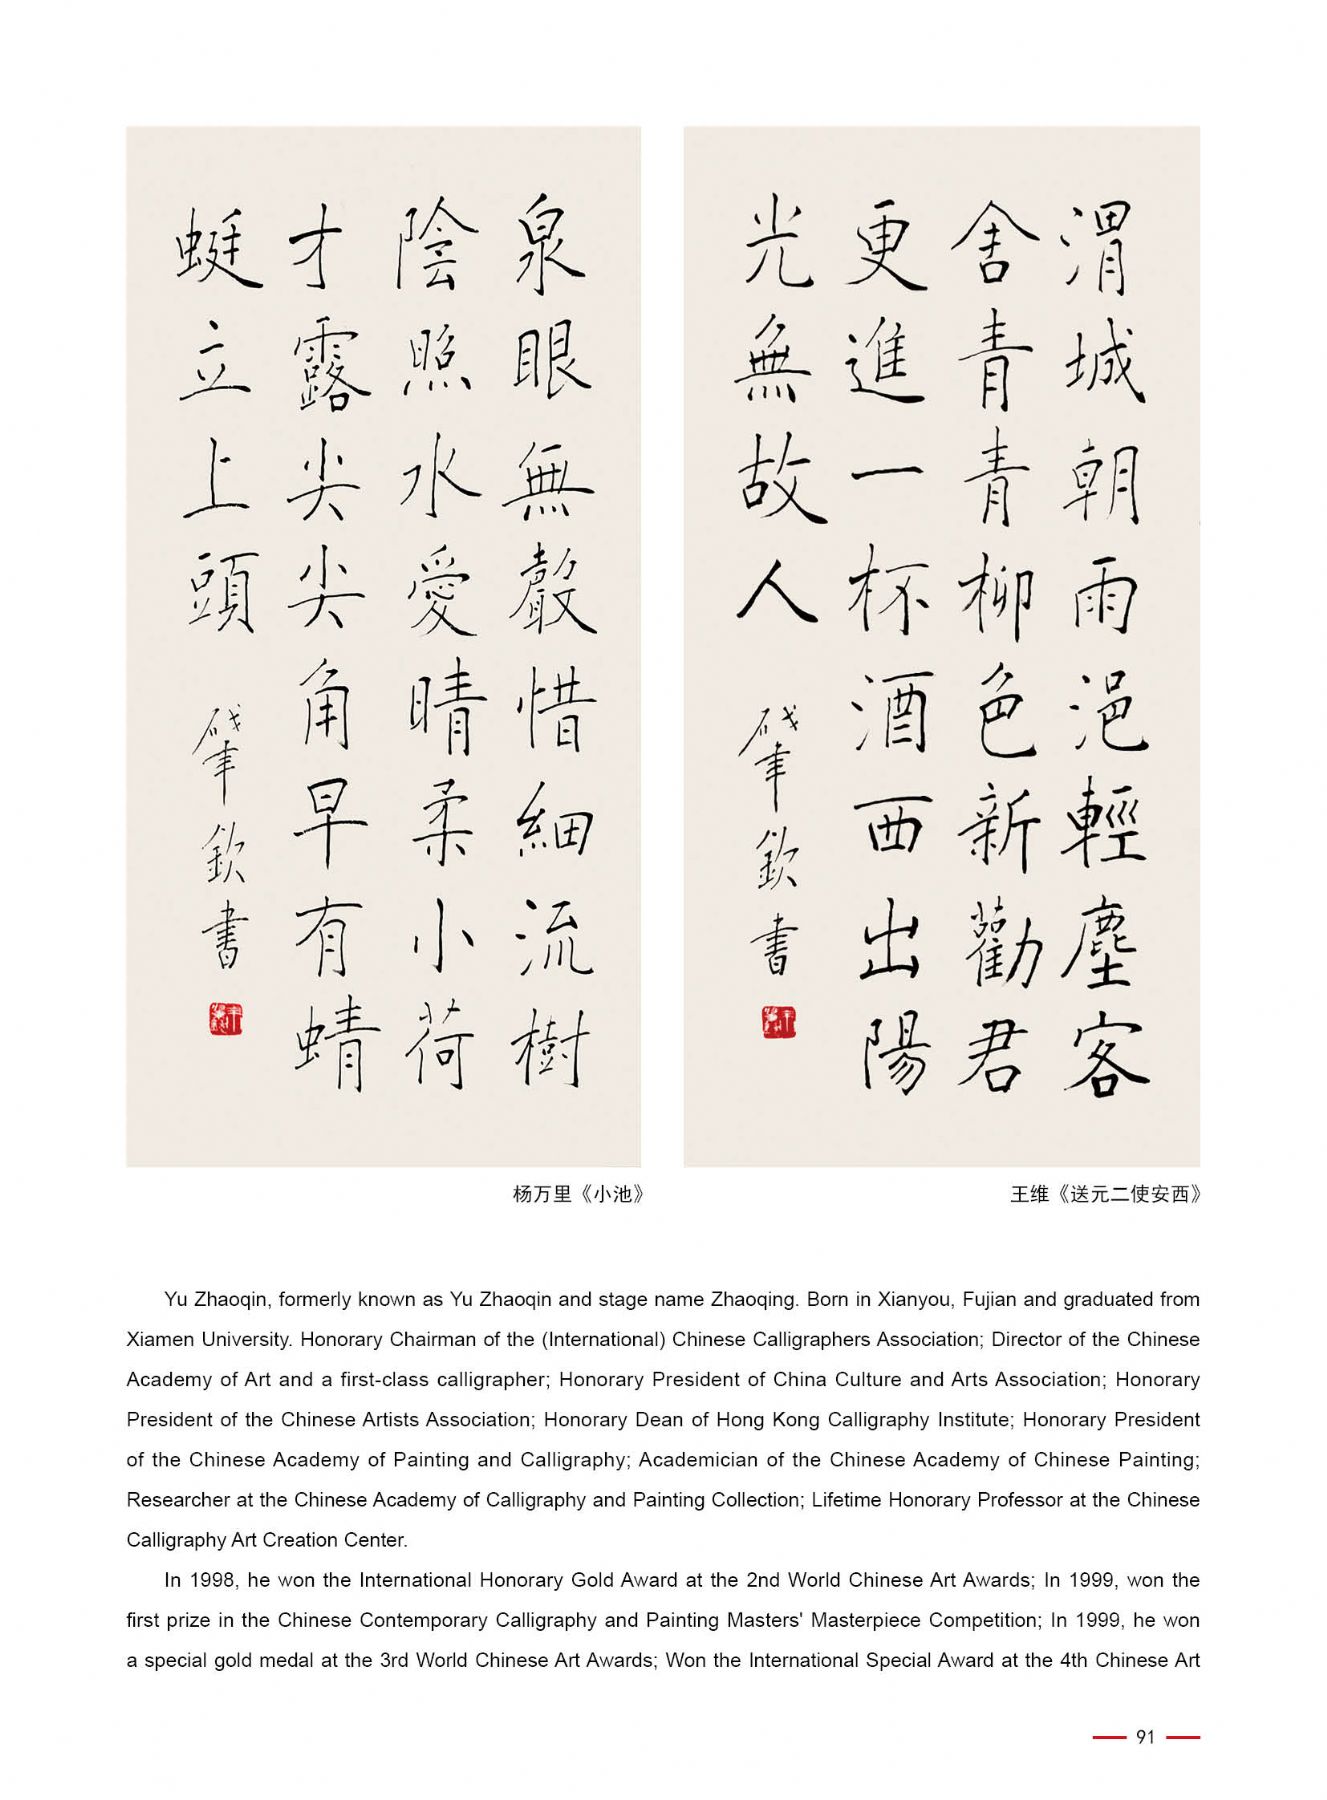 泉眼無聲惜細流樹
陰照水愛晴柔小荷
才露尖尖角早有蜻
蜓立上頭
肇欽書
杨万里《小池》
渭城朝雨浥輕塵客
舍青青柳色新勸君
更進一杯酒西出陽
光無故人
肇欽書
王维《送元二使安西》
Yu Zhaoqin, formerly known as Yu Zhaoqin and stage name Zhaoqing. Born in Xianyou, Fujian and graduated from
Xiamen University. Honorary Chairman of the (International) Chinese Calligraphers Association; Director of the Chinese
Academy of Art and a first-class calligrapher; Honorary President of China Culture and Arts Association; Honorary
President of the Chinese Artists Association; Honorary Dean of Hong Kong Calligraphy Institute; Honorary President
of the Chinese Academy of Painting and Calligraphy; Academician of the Chinese Academy of Chinese Painting;
Researcher at the Chinese Academy of Calligraphy and Painting Collection; Lifetime Honorary Professor at the Chinese
Calligraphy Art Creation Center.
In 1998, he won the International Honorary Gold Award at the 2nd World Chinese Art Awards; In 1999, won the
first prize in the Chinese Contemporary Calligraphy and Painting Masters' Masterpiece Competition; In 1999, he won
a special gold medal at the 3rd World Chinese Art Awards; Won the International Special Award at the 4th Chinese Art
91